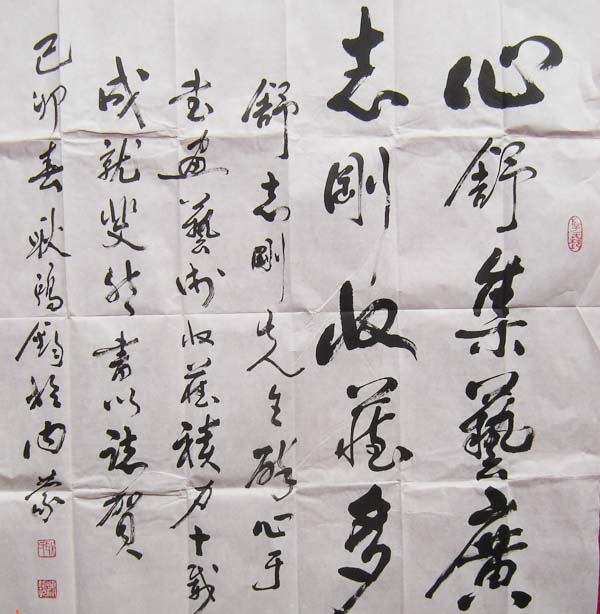 心舒集藝廣
志剛收藏多
舒志剛先生醉心于
書畫藝術收藏積力十載
成就斐然書以誌賀
己卯春耿鴻鈞於内蒙